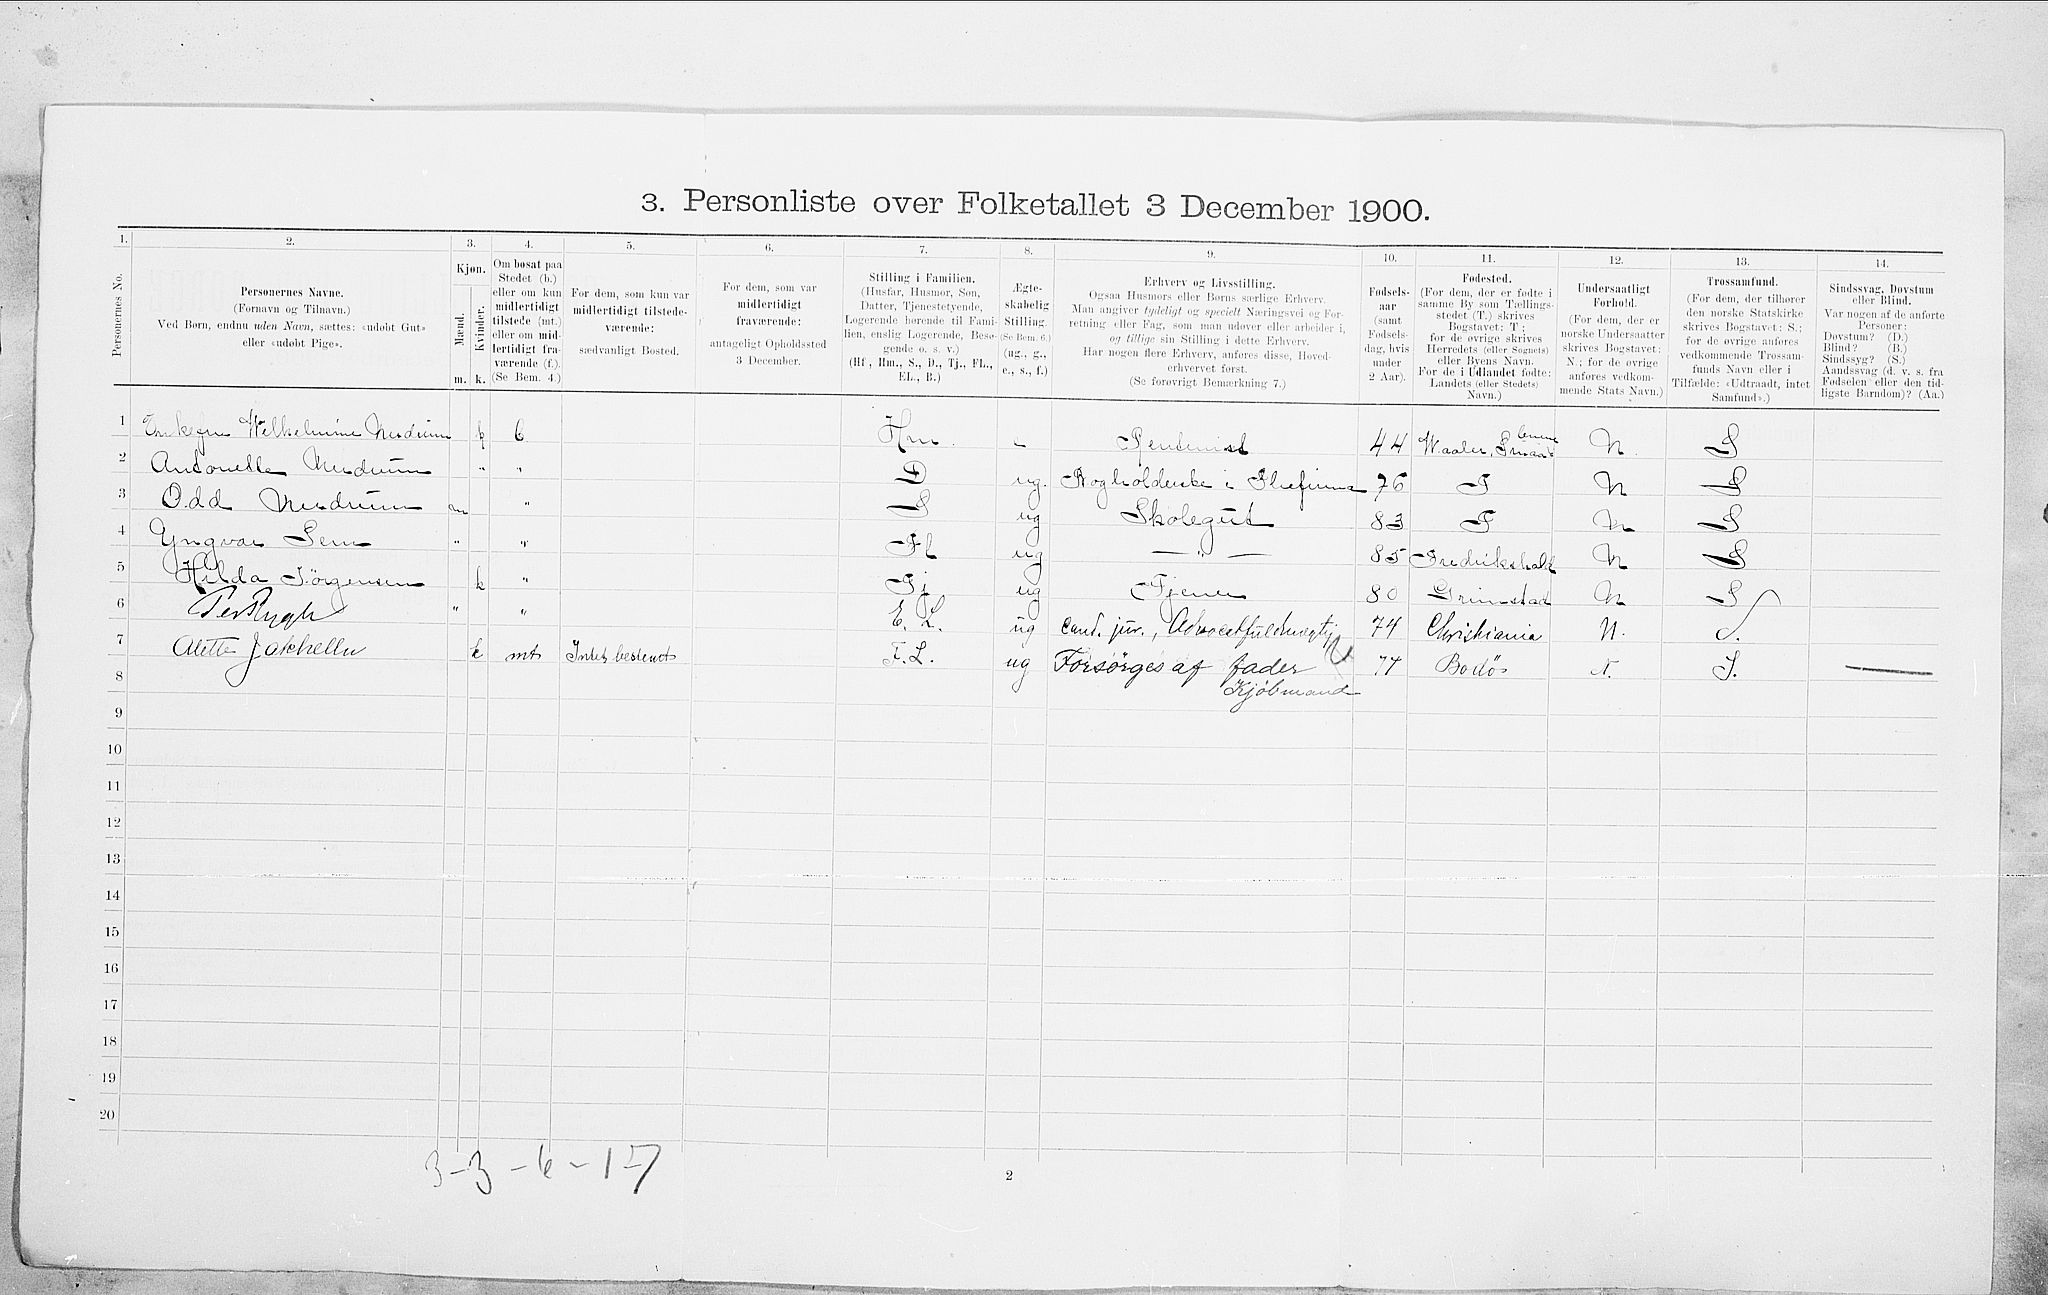 3. Personliste over Folketallet 3 December 1900.
1. 2. 3. 4. 5. 6. 7. 8. 9. 10. 11. 12. 13. 14.
Personernes No.
Personernes Navne.
(Fornavn og Tilnavn.)
Ved Børn, endnu uden Navn, sættes: «udøbt Gut»
eller «udøbt Pige».
Kjøn.
Mænd.
Kvinder.
m. k.
Om bosat paa
Stedet (b.)
eller om kun
midlertidigt
tilstede (mt.)
eller om mid-
lertidigt fra-
værende (f.).
(Se Bem. 4.)
For dem, som kun var
midlertidigt tilstede-
værende:
sædvanligt Bosted.
For dem, som var
midlertidigt
fraværende:
antageligt Opholdssted
3 December.
Stilling i Familien.
(Husfar, Husmor, Søn,
Datter, Tjenestetyende,
Logerende hørende til Fami-
lien, enslig Logerende, Besø-
gende o. s. v.)
(Hf, Hm., S., D., Tj., FL.,
EL., B.)
Ægte-
skabelig
Stilling.
(Se Bem. 6.)
(ug., g.,
e., s., f.)
Erhverv og Livsstilling.
Ogsaa Husmors eller Børns særlige Erhverv.
Man angiver tydeligt og specielt Næringsvei og For-
retning eller Fag, som man udøver eller arbeider i,
og tillige sin Stilling i dette Erhverv.
Har nogen flere Erhverv, anføres disse, Hoved-
erhvervet først.
(Se forøvrigt Bemærkning 7.)
Fødsels-
aar
(samt
Fødsels-
dag, hvis
under
2 Aar).
Fødested.
(For dem, der er fødte i
samme By som Tællings-
stedet (T.) skrives
Bogstavet: T;
for de øvrige skrives
Herredets (eller Sognets)
eller Byens Navn.
For de i Udlandet fødte:
Landets (eller Stedets)
Navn.)
Undersaatligt
Forhold.
(For dem, der er
norske Undersaatter
skrives Bogstavet:
N.; for de øvrige
anføres vedkom-
mende Stats Navn.)
Trossamfund.
(For dem, der tilhører
den norske Statskirke
skrives Bogstavet: S.;
for de øvrige anføres
vedkommende Trossam-
funds Navn eller i
Tilfælde: «Udtraadt, intet
Samfund».)
Sindssvag, Døvstum
eller Blind.
Var nogen af de anførte
Personer:
Døvstum? (D.)
Blind? (B.)
Sindssyg? (S.)
Aandssvag (d. v. s. fra
Fødselen eller den tid-
ligste Barndom)? (Aa.)
1 Wilhelmine Mesdrum k b Hm. e Rentenist 44 Waaler, N S
2 Antonette Mesdrum " " D ug. Bogholderske i 76 T N S
3 Odd Mesdrum m " S ug Skolegut 83 T N S
4 Yngvar Sem " " Fl ug — " — 85 Fredrikshald N S
5 Hilda Jörgensen k " Tj ug Tjener 80 Grimstad N S
6 Per Rygh " " E. L. ug cand. jur., Advocatfuldmægtig 74 Christiania N. S.
7 Alette Jakhelln k mt Intet bestemt F. L. ug Forsørges af fader 74 Bodø N. S. —
Kjøbmand
8
9
10
11
12
13
14
15
16
17
18
19
20
3-3-6-1-7
2